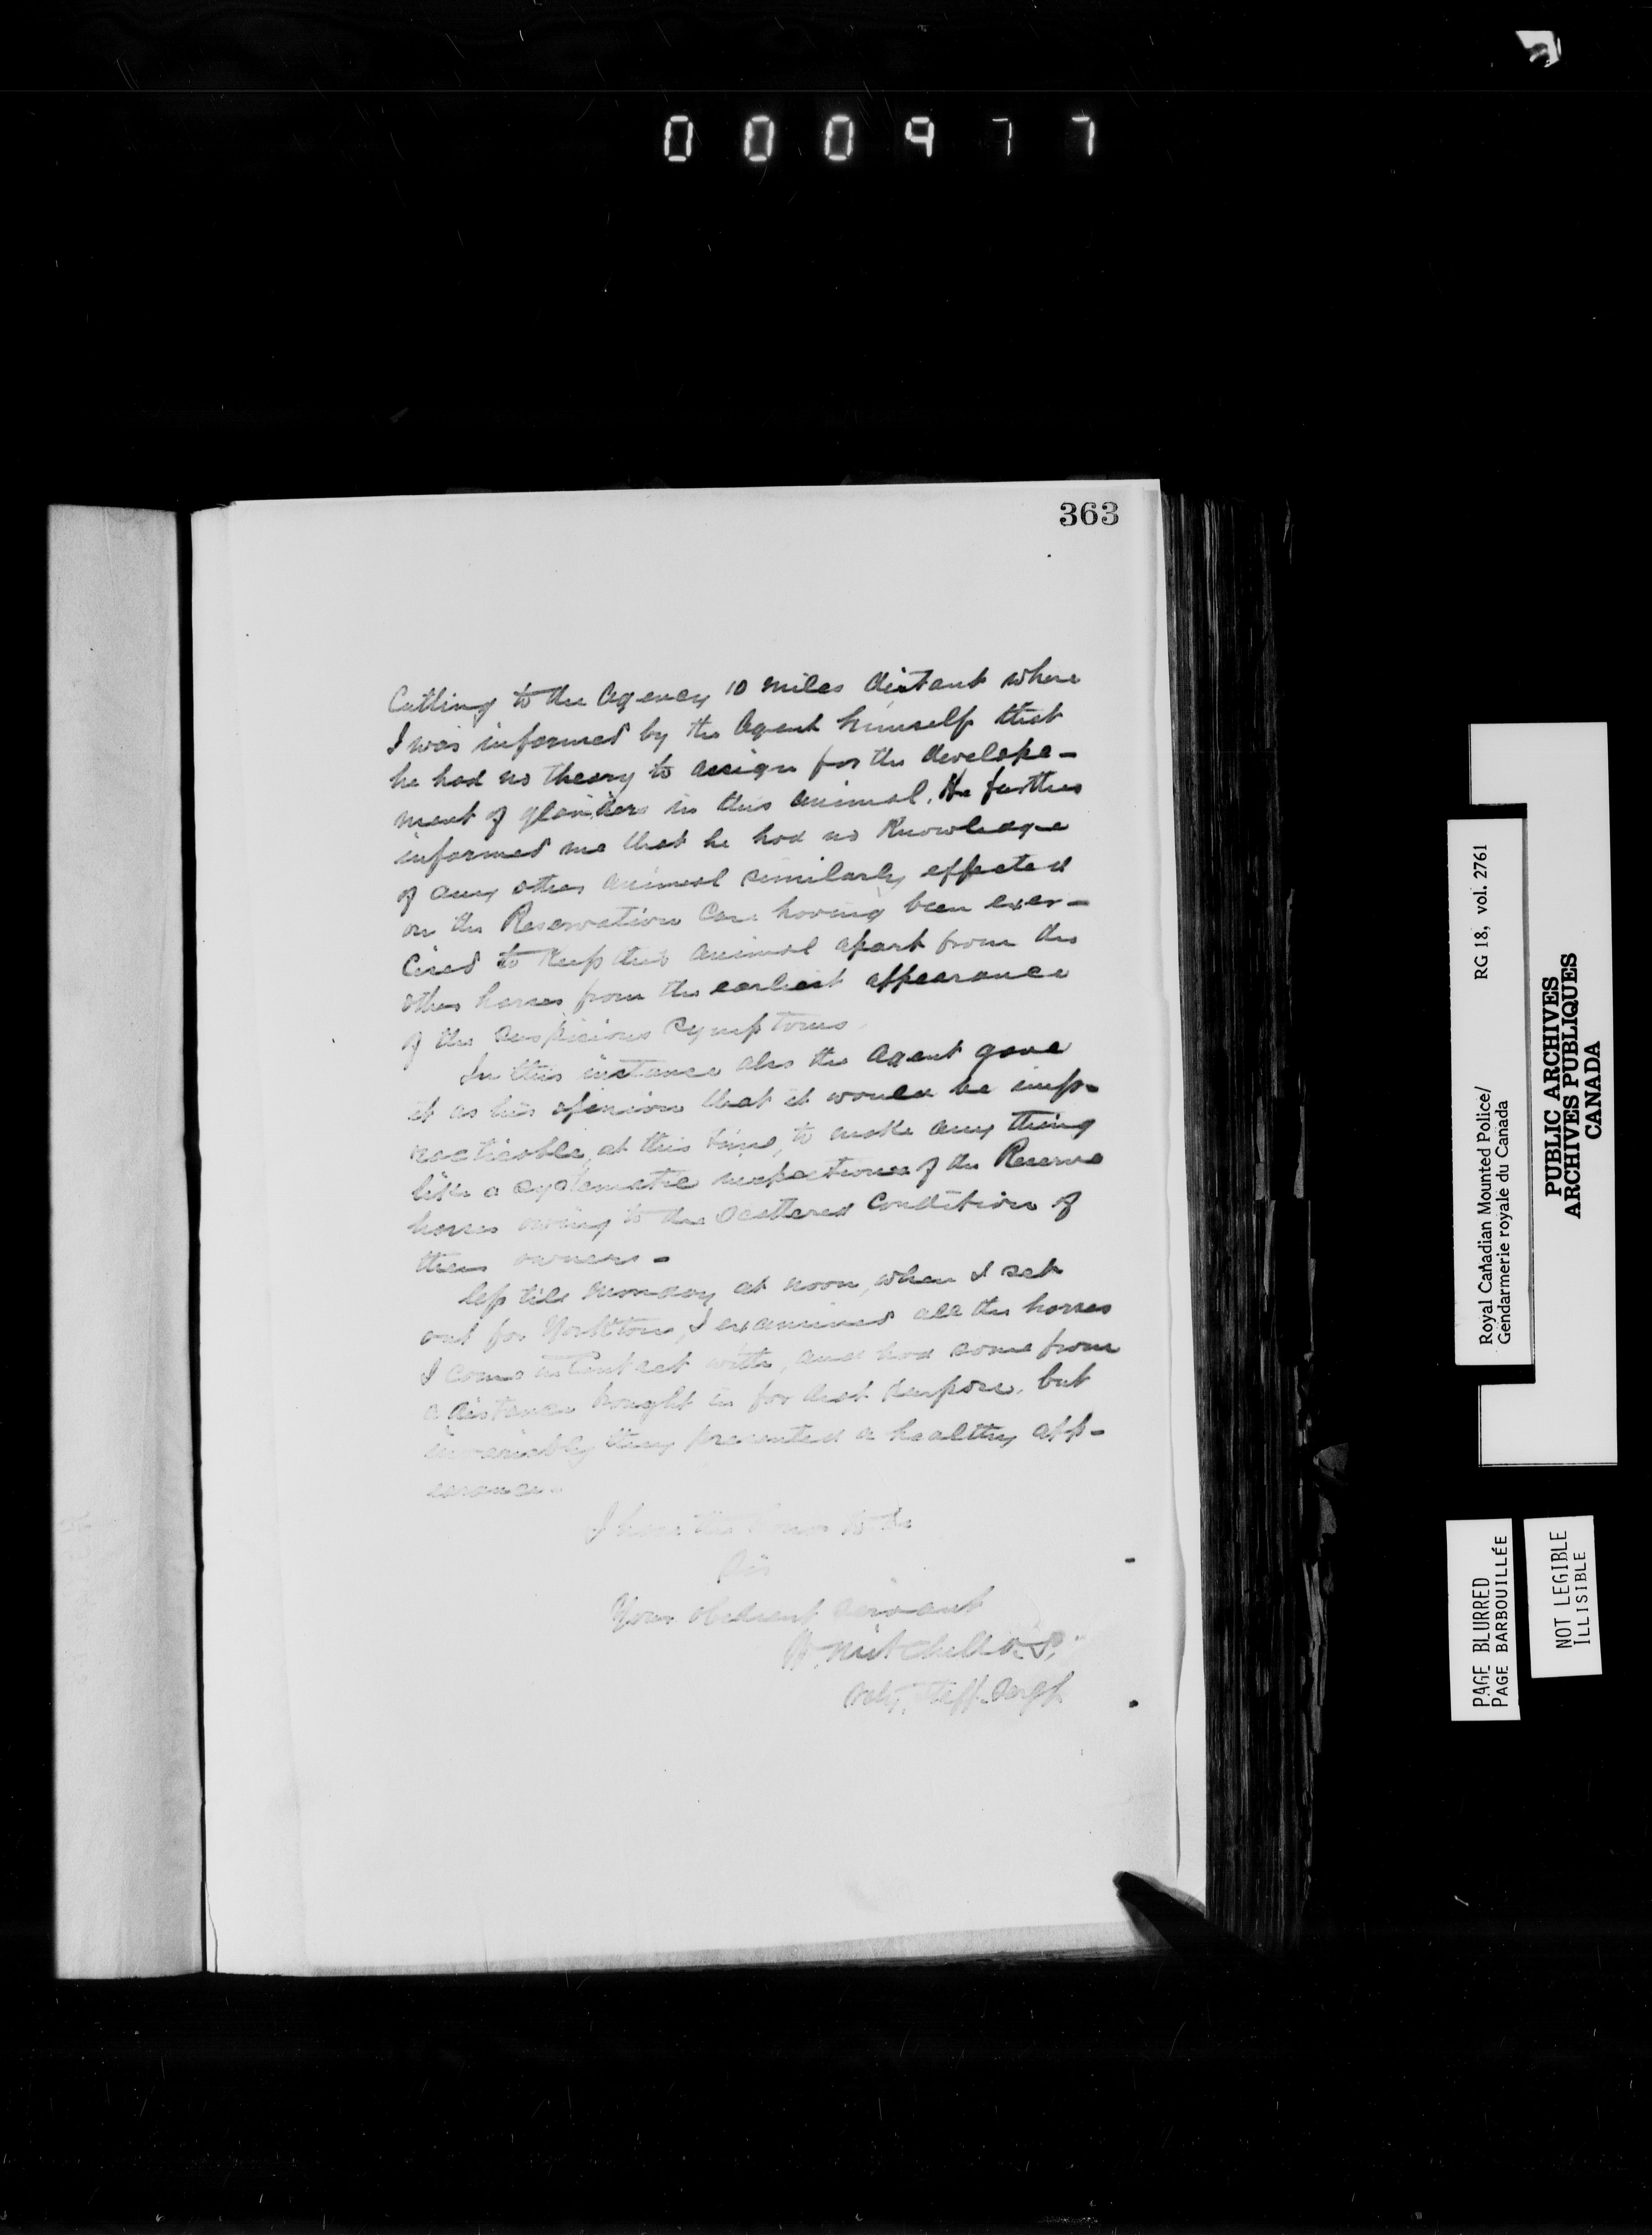 000977
363
Cutting to the Agency 10 miles distant where
I was informed by the Agent himself that
he had no theory to assign for the develope-
ment of glanders in this animal. He further
informed me that he had no Knowledge
of any other animal similarly effected
on the Reservation Care having been exer-
cised to Keep this animal apart from the
other horses from the earliest appearance
of the suspicious symptoms.
In this instance also the Agent gave
it as his opinion that it would be imp-
racticable, at this time, to make any thing
like a systematic inspection of the Reserve
horses owing to the scattered condition of
their owners -
Up till Monday at noon, when I set
out for Yorkton, I examined all the horses
I came in Contact with, and had some from
a distance brought in for that purpose, but
invariably they presented a healthy app-
earance.
I have the honor to be
Sir
Your obedient servant
W. Mitchell V.S.
Vety. Staff. Sergt.
Royal Canadian Mounted Police/
Gendarmerie royale du Canada
RG 18, vol. 2761
PUBLIC ARCHIVES
ARCHIVES PUBLIQUES
CANADA
PAGE BLURRED
PAGE BARBOUILLÉE
NOT LEGIBLE
ILLISIBLE